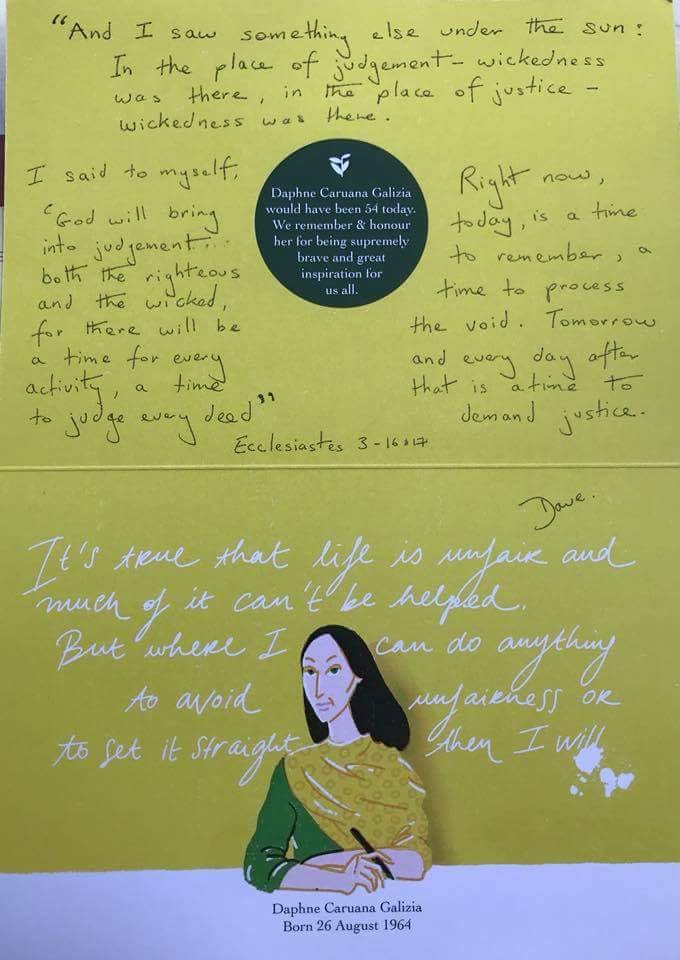 “And I saw something else under the sun:
In the place of judgement – wickedness
was there, in the place of justice –
wickedness was there.
I said to myself,
‘God will bring
into judgement...
both the righteous
and the wicked,
for there will be
a time for every
activity, a time
to judge every deed’”
Ecclesiastes 3 - 16 & 17
Daphne Caruana Galizia
would have been 54 today.
We remember & honour
her for being supremely
brave and great
inspiration for
us all.
Right now,
today, is a time
to remember, a
time to process
the void. Tomorrow
and every day after
that is a time to
demand justice.
Dave.
It's true that life is unfair and
much of it can't be helped.
But where I can do anything
to avoid unfairness or
to set it straight then I will
Daphne Caruana Galizia
Born 26 August 1964